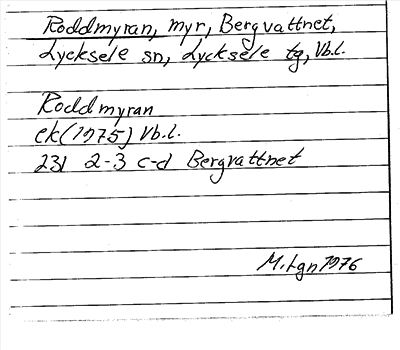 Roddmyran, myr, Bergvattnet,
Lycksele sn, Lycksele tg, Vb.l.
Roddmyran
ek(1975) Vb.l.
231 2-3 c-d Bergvattnet
M.Lgn 1976